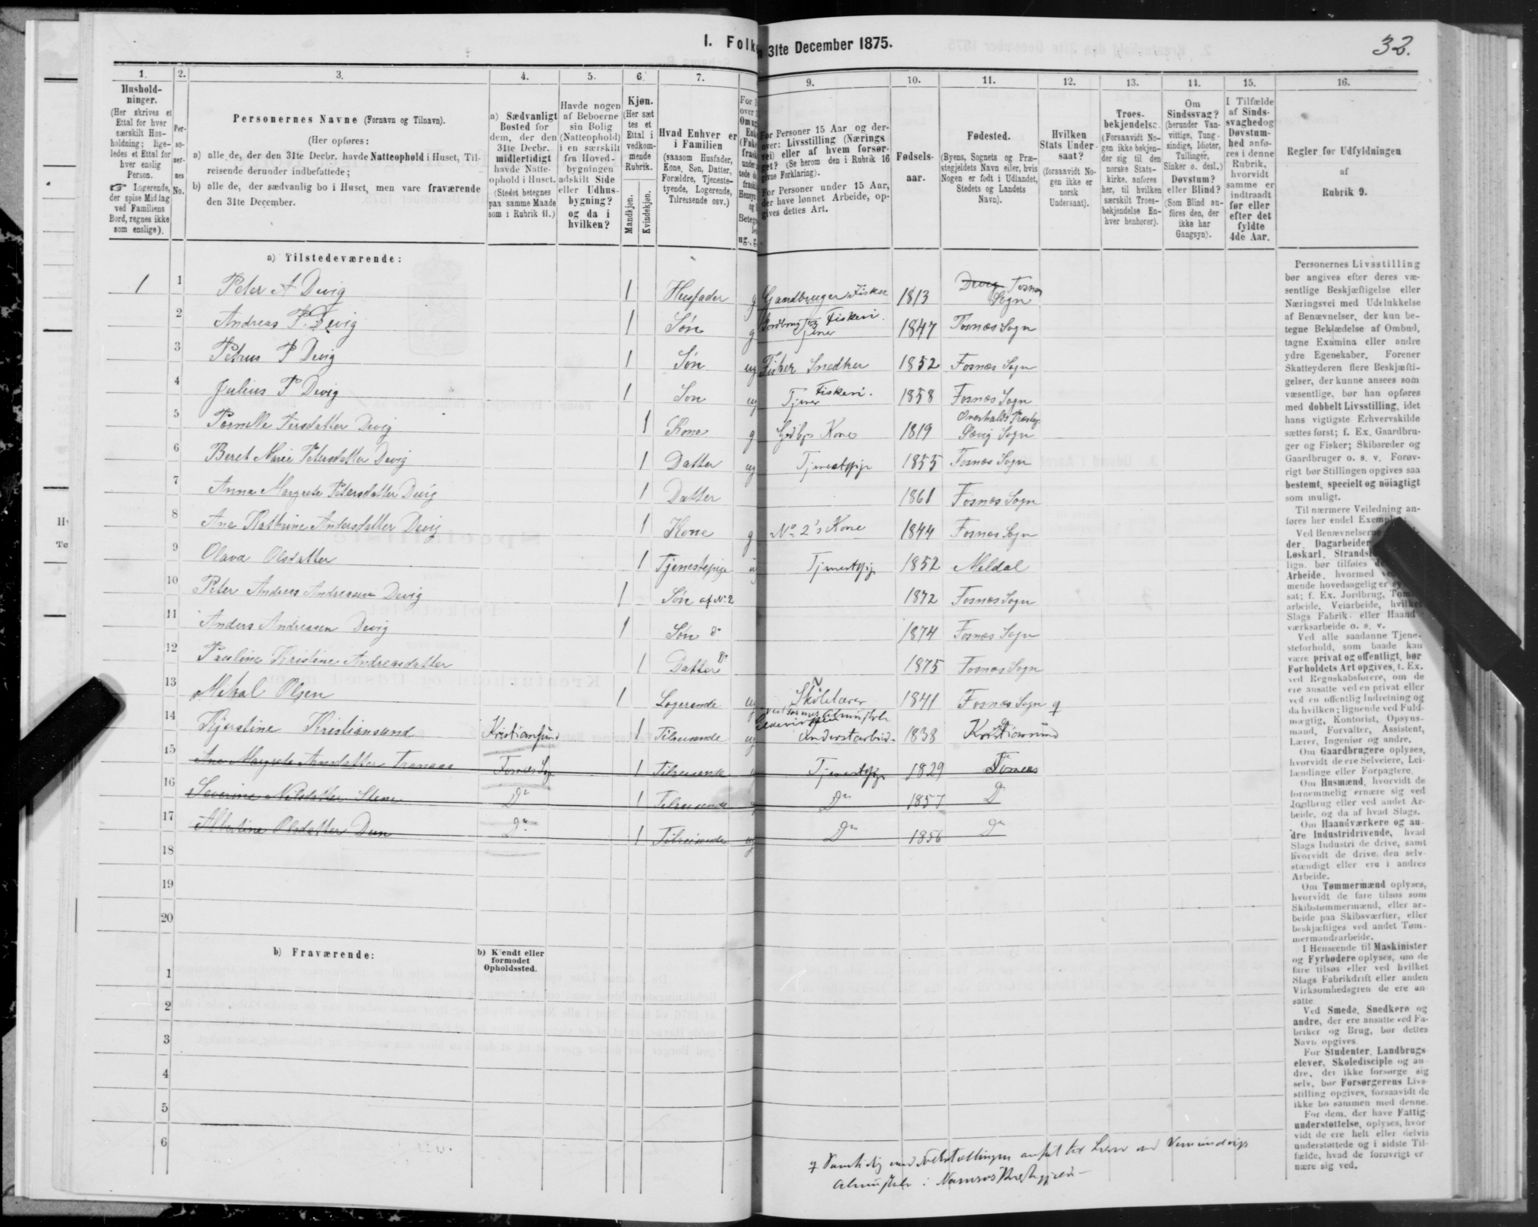 I. Folk 31te December 1875.
32.
1. 2. 3. 4. 5. 6. 7. 9. 10. 11. 12. 13. 14. 15. 16.
Hushold-
ninger.
(Her skrives et
Ettal for hver
særskilt Hus-
holdning; lige-
ledes et Ettal for
hver enslig
Person.
Logerende,
der spise Middag
ved Familiens
Bord, regnes ikke
som enslige).
Per-
so-
ner-
nes
No.
Personernes Navne (Fornavn og Tilnavn).
(Her opføres:
a) alle de, der den 31te Decbr. havde Natteophold i Huset, Til-
reisende derunder indbefattede;
b) alle de, der sædvanlig bo i Huset, men vare fraværende
den 31te December.
a) Sædvanligt
Bosted for
dem, der den
31te Decbr.
midlertidigt
havde Natte-
ophold i Huset.
(Stedet betegnes
paa samme Maade
som i Rubrik 11.)
Havde nogen
af Beboerne
sin Bolig
(Natteophold)
i en særskilt
fra Hoved-
bygningen
adskilt Side
eller Udhus-
bygning?
og da i
hvilken?
Kjøn.
(Her sæt
tes et
Ettal i
vedkom-
mende
Rubrik.
Mandkjøn.
Kvindekjøn.
Hvad Enhver er
i Familien
(saasom Husfader,
Kone, Søn, Datter,
Forældre, Tjeneste-
tyende, Logerende,
Tilreisende osv.)
For Personer 15 Aar og der-
over: Livsstilling (Nærings
vei) eller af hvem forsør-
get? (Se herom den i Rubrik 16
givne Forklaring).
For Personer under 15 Aar,
der have lønnet Arbeide, op-
gives dettes Art.
Fødsels-
aar.
Fødested.
(Byens, Sognets og Præ-
stegjeldets Navn eller, hvis
Nogen er født i Udlandet,
Stedets og Landets
Navn).
Hvilken
Stats Under-
saat?
(forsaavidt No-
gen ikke er
norsk
Undersaat).
Troes-
bekjendelse.
(Forsaavidt No-
gen ikke bekjen-
der sig til den
norske Stats-
kirke, anføres
her, til hvilken
særskilt Troes-
bekjendelse En-
hver henhører).
Om
Sindssvag?
(herunder Van-
vittige, Tung-
sindige, Idioter,
Tullinger,
Sinker o. desl.)
Døvstum?
eller Blind?
(Som Blind an-
føres den, der
ikke har
Gangsyn).
I Tilfælde
af Sinds-
svaghed og
Døvstum-
hed anfø-
res i denne
Rubrik,
hvorvidt
samme er
indtraadt
før eller
efter det
fyldte
4de Aar.
Regler for Udfyldningen
af
Rubrik 9.
a) Tilstedeværende:
1 1 Peter A Devig 1 Husfader g Gaardbruger Fisker 1813 Devig Fosnes Sogn
2 Andreas P. Devig 1 Søn g Jordbrug og Fiskeri Tjener 1847 Fosnæs Sogn
3 Petrus P Devig 1 Søn ug Fisker Snedker 1852 Fosnæs Sogn
4 Julius P Devig 1 Søn ug Tjener Fiskeri. 1858 Fosnæs Sogn
5 Pernille Iversdatter Devig 1 Kone g Kone 1819 Overhalla Præstegj. Sogn
6 Beret Marie Petersdatter Devig 1 Datter ug Tjenestepige 1855 Fosnæs Sogn
7 Anna Margrete Petersdatter Devig 1 Datter 1861 Fosnæs Sogn
8 Ane Kathrine Andersdatter Devig 1 Kone g No 2's Kone 1844 Fosnæs Sogn
9 Olava Olsdatter 1 Tjenestepige ug Tjenestepige 1852 Meldal
10 Peter Andreas Andreasen Devig 1 Søn af No 2 1872 Fosnæs Sogn
11 Anders Andreasen Devig 1 Søn do 1874 Fosnæs Sogn
12 Pauline Kristine Andreasdatter 1 Datter Do 1875 Fosnæs Sogn
13 Mikal Olsen 1 Logerende ug Skolelærer 1841 Fosnæs Sogn
14 Kjerstine Kristiansund Kristiansund 1 Tilreisende ug 1838 Kristiansund
15 Ane Margrete Arnsdatter Fosnæs Sogn 1 Tilreisende Tjenestepige 1829 Fosnæs
16 Severine Nilsdatter Do 1 Tilreisende Do 1857 D
17 Albertine Olsdatter Duun Do 1 Tilreisende ug Do 1856 Do
18
19
20
b) Fraværende:
b) Kjendt eller
formodet
Opholdssted.
1
2
3
4
5
6
Personernes Livsstilling
bør angives efter deres væ-
sentlige Beskjæftigelse eller
Næringsvei med Udelukkelse
af Benævnelser, der kun be-
tegne Beklædelse af Ombud,
tagne Examina eller andre
ydre Egenskaber. Forener
Skatteyderen flere Beskjæfti-
gelser, der kunne ansees som
væsentlige, bør han opføres
med dobbelt Livsstilling, idet
hans vigtigste Erhvervskilde
sættes først; f. Ex. Gaardbru-
ger og Fisker; Skibsreder og
Gaardbruger o. s. v. Forøv-
rigt bør Stillingen opgives saa
bestemt, specielt og nøiagtigt
som muligt.
Til nærmere Veiledning an-
føres her endel
Ved Benævnelserne
der, Dagarbeider
Løskarl,
lign. bør tilføies
Arbeide, hvormed
mende hovedsagelig er
sat; f. Ex. Jordbrug,
arbeide, Veiarbeide, hvilket
Slags Fabrik- eller Haand-
værksarbeide o. s. v.
Ved alle saadanne Tjene-
steforhold, som baade kan
være privat og offentligt, bør
Forholdets Art opgives, t. Ex.
ved Regnskabsførere, om de
ere ansatte ved en privat eller
ved en offentlig Indretning og
da hvilken; lignende ved Fuld-
mægtig, Kontorist, Opsyns-
mand, Forvalter, Assistent,
Lærer, Ingeniør og andre.
Om Gaardbrugere oplyses,
hvorvidt de ere Selveiere, Lei-
lændinge eller Forpagtere.
Om Husmænd, hvorvidt de
fornemmelig ernære sig ved
Jordbrug eller ved andet Ar-
beide, og da af hvad Slags.
Om Haandværkere og an-
dre Industridrivende, hvad
Slags Industri de drive, samt
hvorvidt de drive den selv-
stændigt eller ere i andres
Arbeide.
Om Tømmermænd oplyses,
hvorvidt de fare tilsøs som
Skibstømmermænd, eller ar-
beide paa Skibsværfter, eller
beskjæftiges ved andet Tøm-
mermandsarbeide.
I Henseende til Maskinister
og Fyrbødere oplyses, om de
fare tilsøs eller ved hvilket
Slags Fabrikdrift eller anden
Virksomhedsgren de ere an-
satte.
Ved Smede, Snedkere og
andre, der ere ansatte ved Fa-
briker og Brug, bør dettes
Navn opgives.
For Studenter, Landbrugs-
elever, Skoledisciple og an-
dre, der ikke forsørge sig
selv, bør Forsørgerens Livs-
stilling opgives, forsaavidt de
ikke bo sammen med denne.
For dem, der have Fattig-
understøttelse, oplyses, hvor
vidt de ere helt eller delvis
understøttede og i sidste Til-
fælde, hvad de forøvrigt er
nære sig ved.
Samtidig med Folketællingen ansat ved
Almueskole i Namsos Præstegjæld